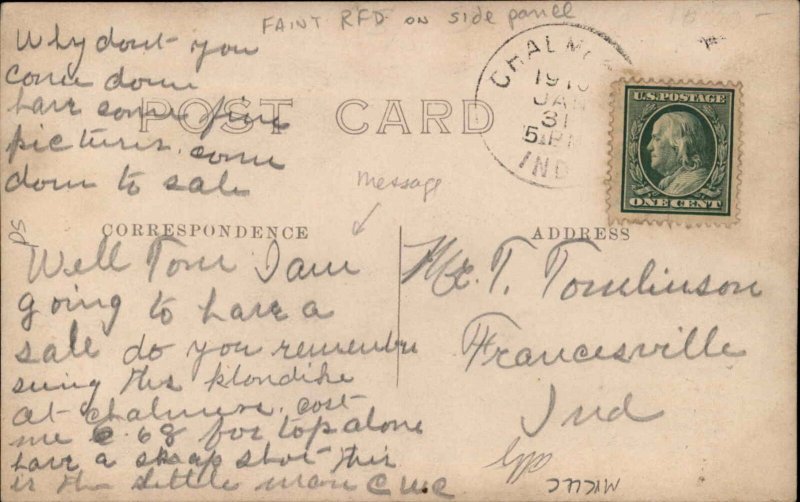 FAINT RFD on side panel
Why dont you
come down
have some fine
pictures. come
down to sale
POST CARD
CHALMERS
1910
JAN
31
5 PM
IND
U.S. POSTAGE
ONE CENT
message
CORRESPONDENCE
ADDRESS
Well Tom I am
going to have a
sale do you remember
seing this klondike
at chalmers. cost
me 2.68 for top alone
have a snap shot this
is the little man CWC
Mr. T. Tomlinson
Francesville
Ind